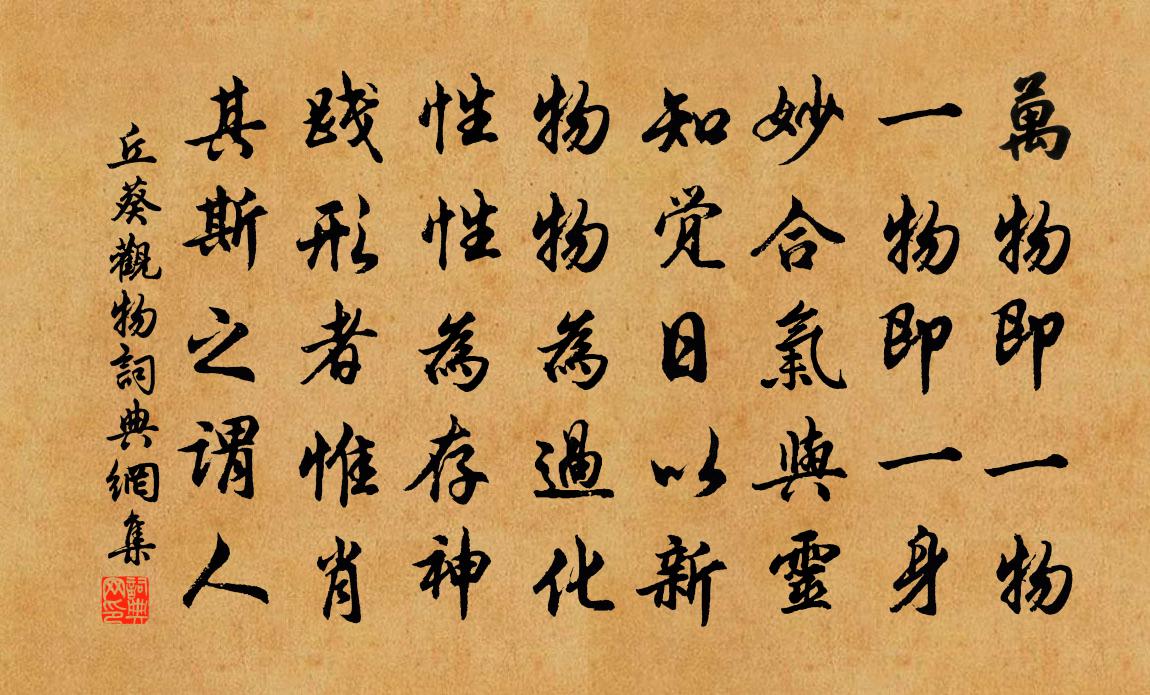 萬物即一物
一物即一身
妙合氣與靈
知觉日以新
物物為過化
性性為存神
践形者惟肖
其斯之謂人
丘葵觀物詞典網集
詞典网印